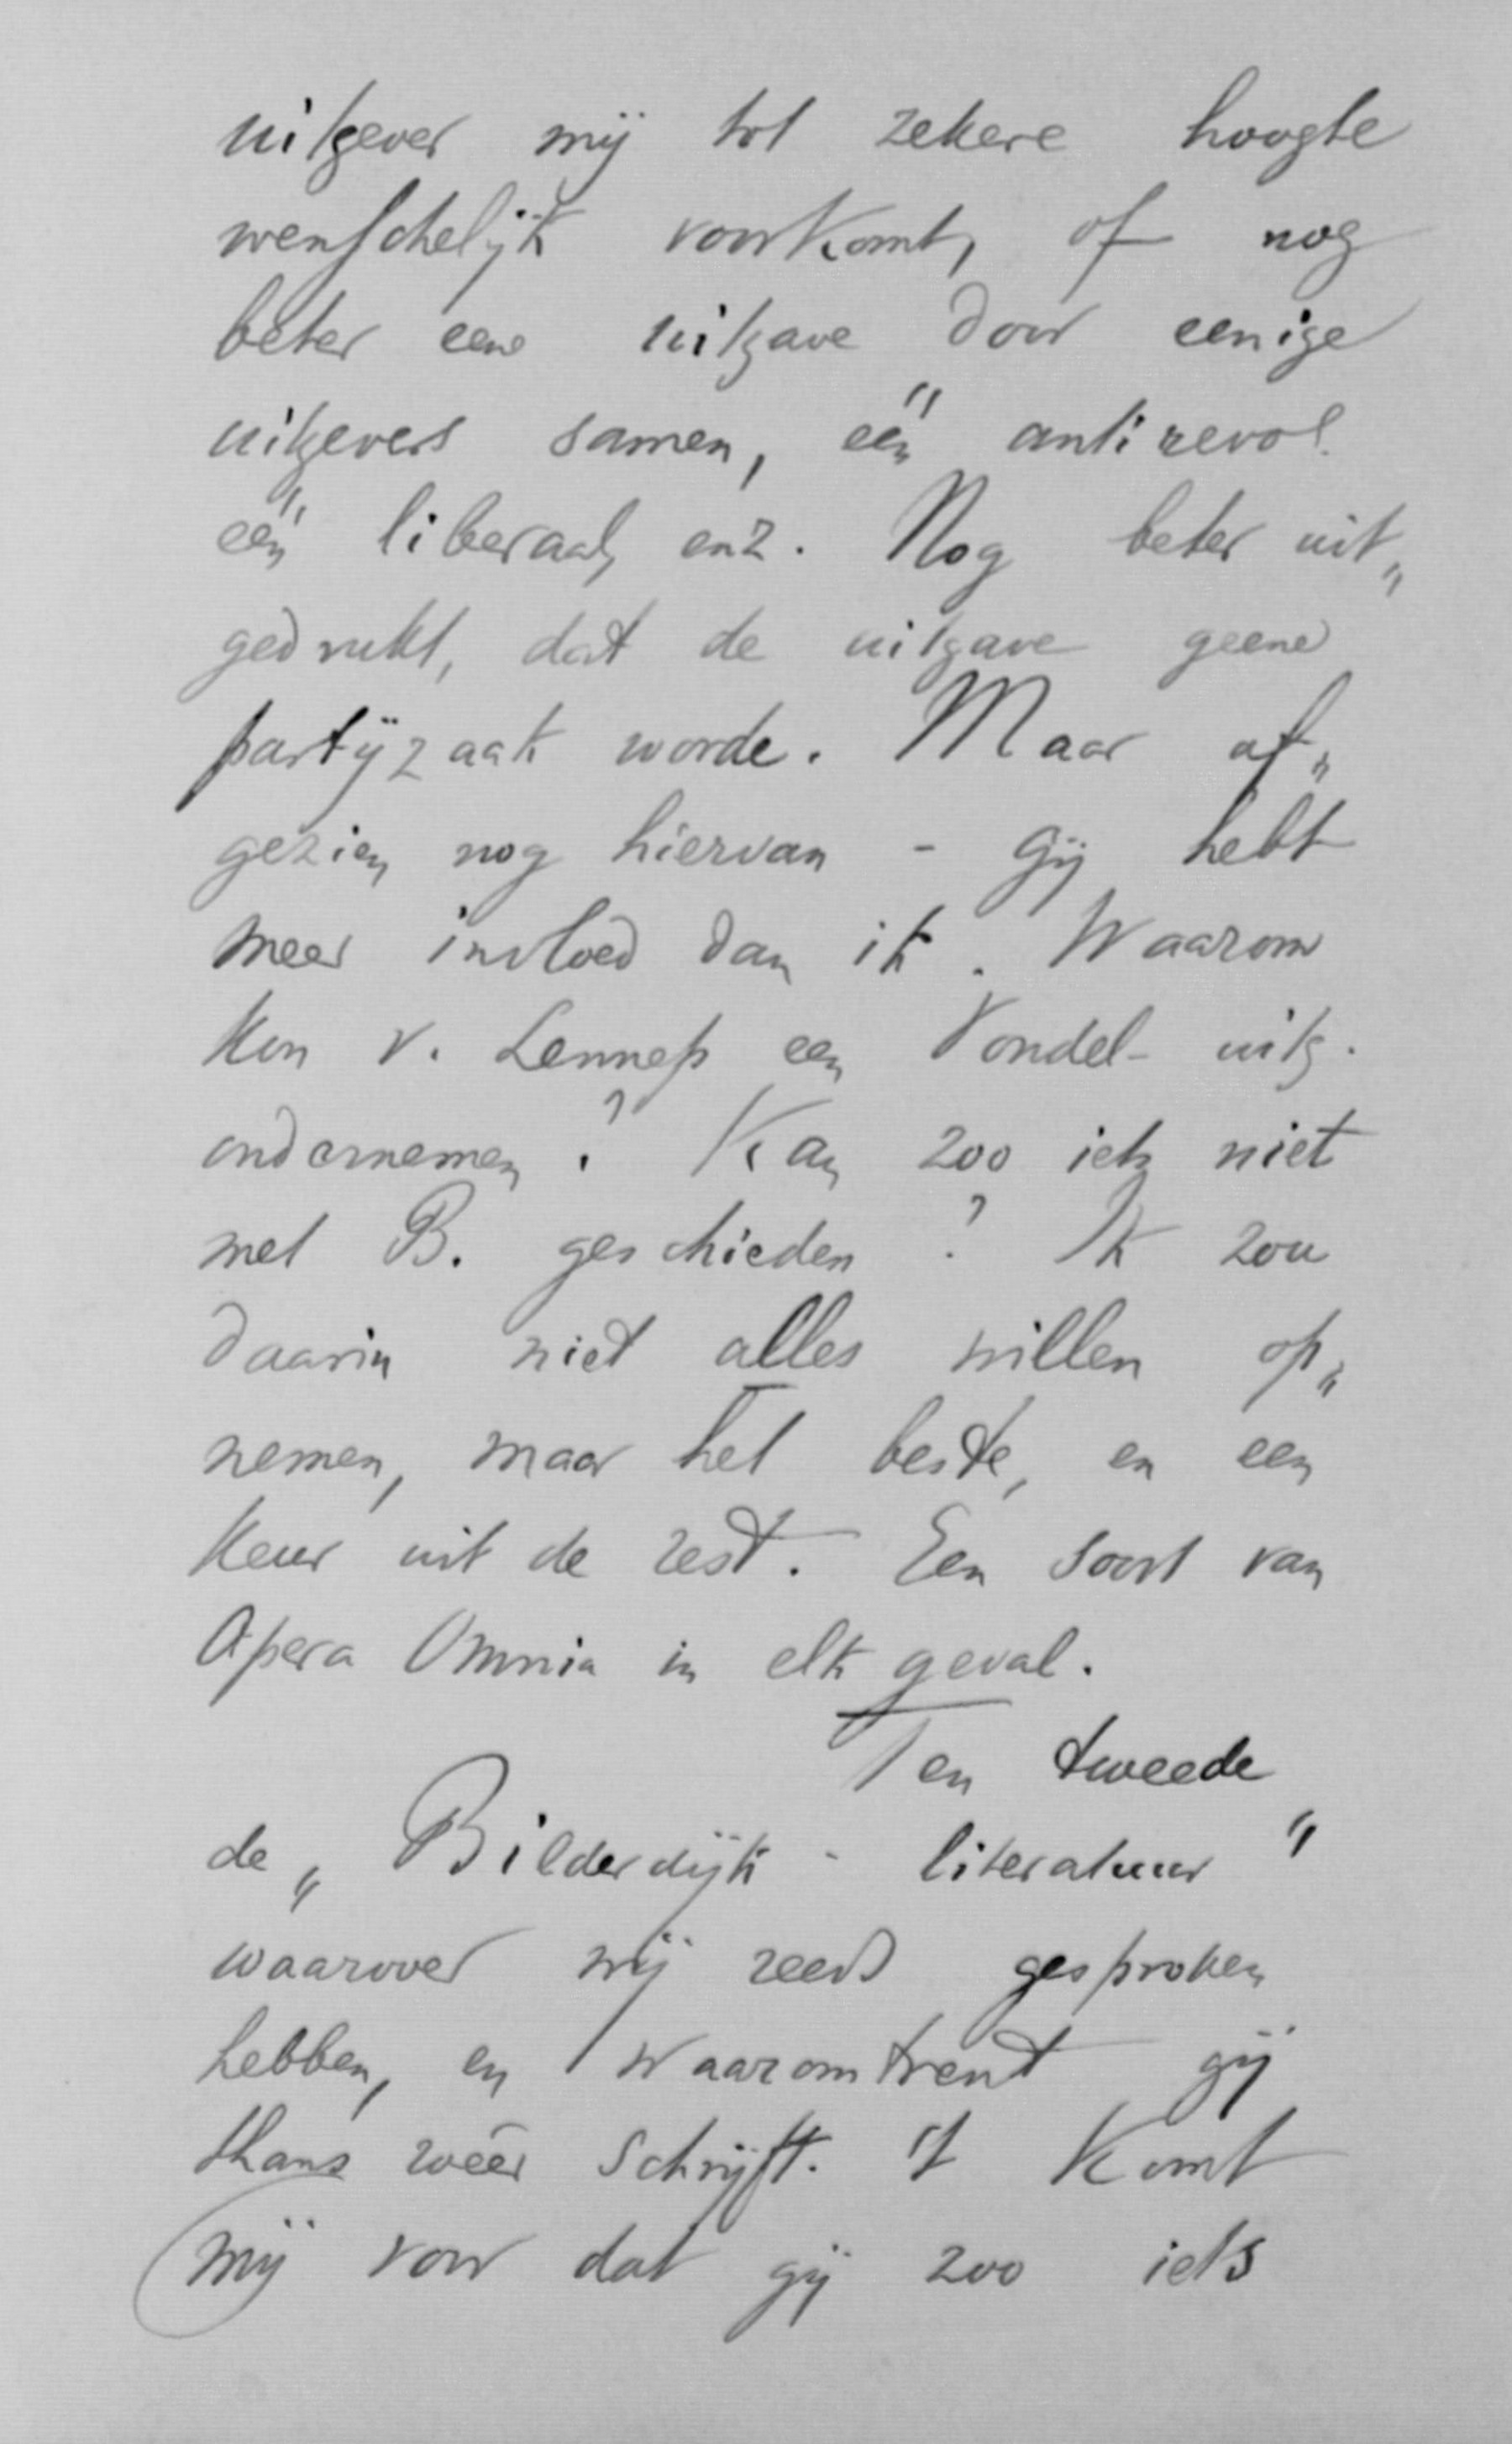 uitgever mij tot zekere hoogte
wenschelijk voorkomt, of nog
beter eene uitgave door eenige
uitgevers samen, één antirevol.
één liberaal, enz. Nog beter uit„
gedrukt, dat de uitgave geene
partijzaak worde. Maar af„
gezien nog hiervan - gij hebt
meer invloed dan ik. Waarom
kon v. Lennep een Vondel-uitg.
ondernemen? Kan zoo iets niet
met B. geschieden? Ik zou
daarin niet alles willen op„
nemen, maar het beste, en een
keur uit de rest. Een soort van
Opera Omnia in elk geval.
Ten tweede
de „Bilderdijk-literatuur"
waarover wij reeds gesproken
hebben, en waaromtrent gij
thans wéér schrijft. 't Komt
mij voor dat gij zoo iets